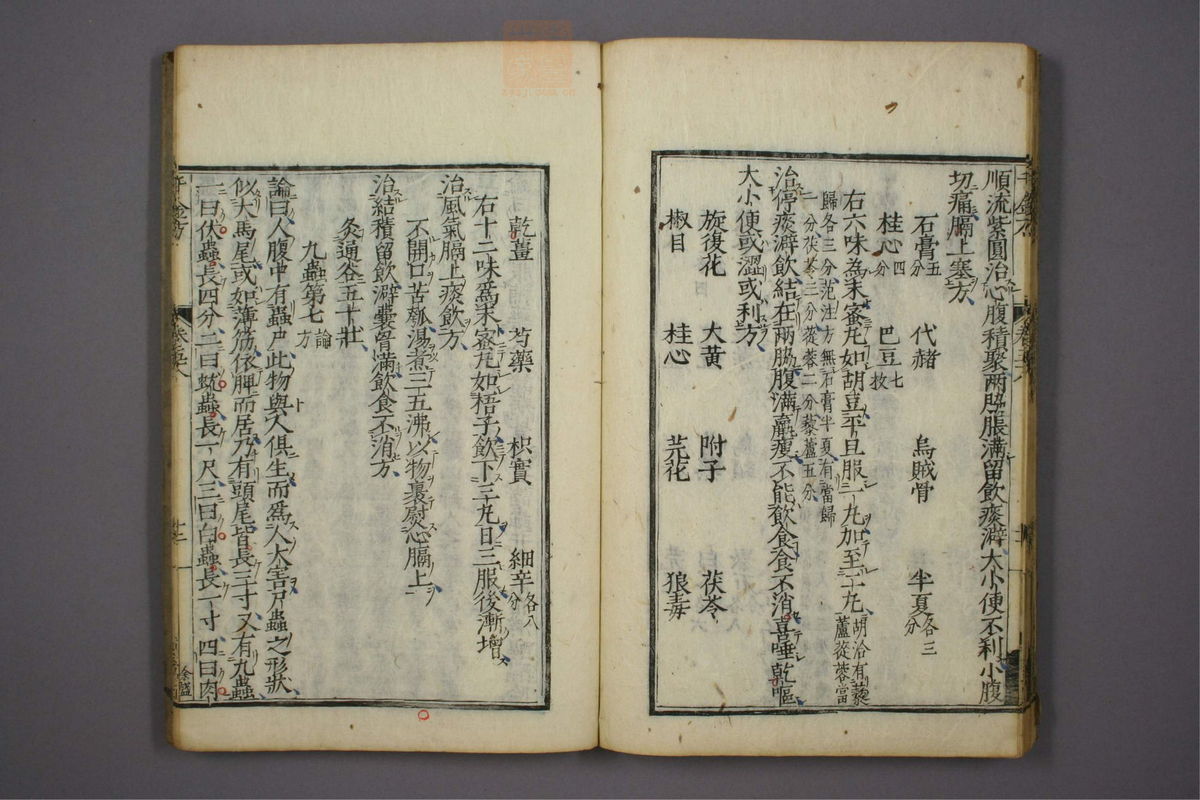 順流紫圓治心腹積聚兩脇脹滿留飲痰澼大小便不利小腹
切痛膈上塞方
石膏五分 代赭 烏賊骨 半夏各三分
桂心四分 巴豆七枚
右六味爲末蜜丸如胡豆平旦服一丸加至二丸胡洽有藜蘆蓯蓉當
歸各三分范汪方無石膏半夏有當歸
一分茯苓三分蓯蓉二分藜蘆五分
治停痰澼飲結在兩脇腹滿羸瘦不能飲食食不消喜唾乾嘔
大小便或澀或利方
旋復花 大黃 附子 茯苓
椒目 桂心 芫花 狼毒
乾薑 芍藥 枳實 細辛各八分
右十二味爲末蜜丸如梧子飲下三丸日三服後漸增
治風氣膈上痰飲方
不開口苦瓠湯煮三五沸以物裹熨心膈上
治結積留飲澼囊胷滿飲食不消方
灸通谷五十壯
九蟲第七論方
論曰人腹中有蟲尸此物與人俱生而爲人大害尸蟲之形狀
似大馬尾或如薄筋依脾而居乃有頭尾皆長三寸又有九蟲
一曰伏蟲長四分二曰蚘蟲長一尺三曰白蟲長一寸四曰肉
千金方